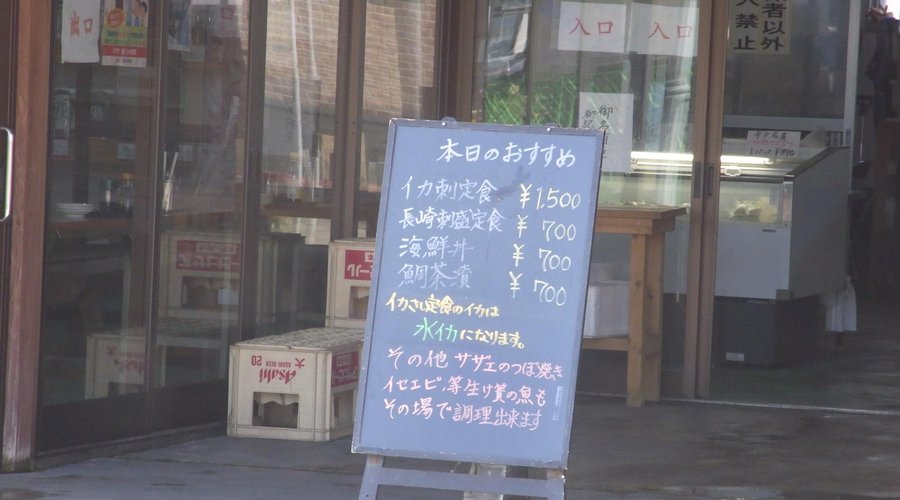 出口
入口
入口
者以外
入禁止
本日のおすすめ
イカ刺定食 ¥1,500
長崎刺盛定食 ¥700
海鮮丼 ¥700
鯛茶漬 ¥700
イカさし定食のイカは
水イカになります。
その他 サザエのつぼ焼き
イセエビ、等生け簀の魚も
その場で調理出来ます
大 20 Asahi